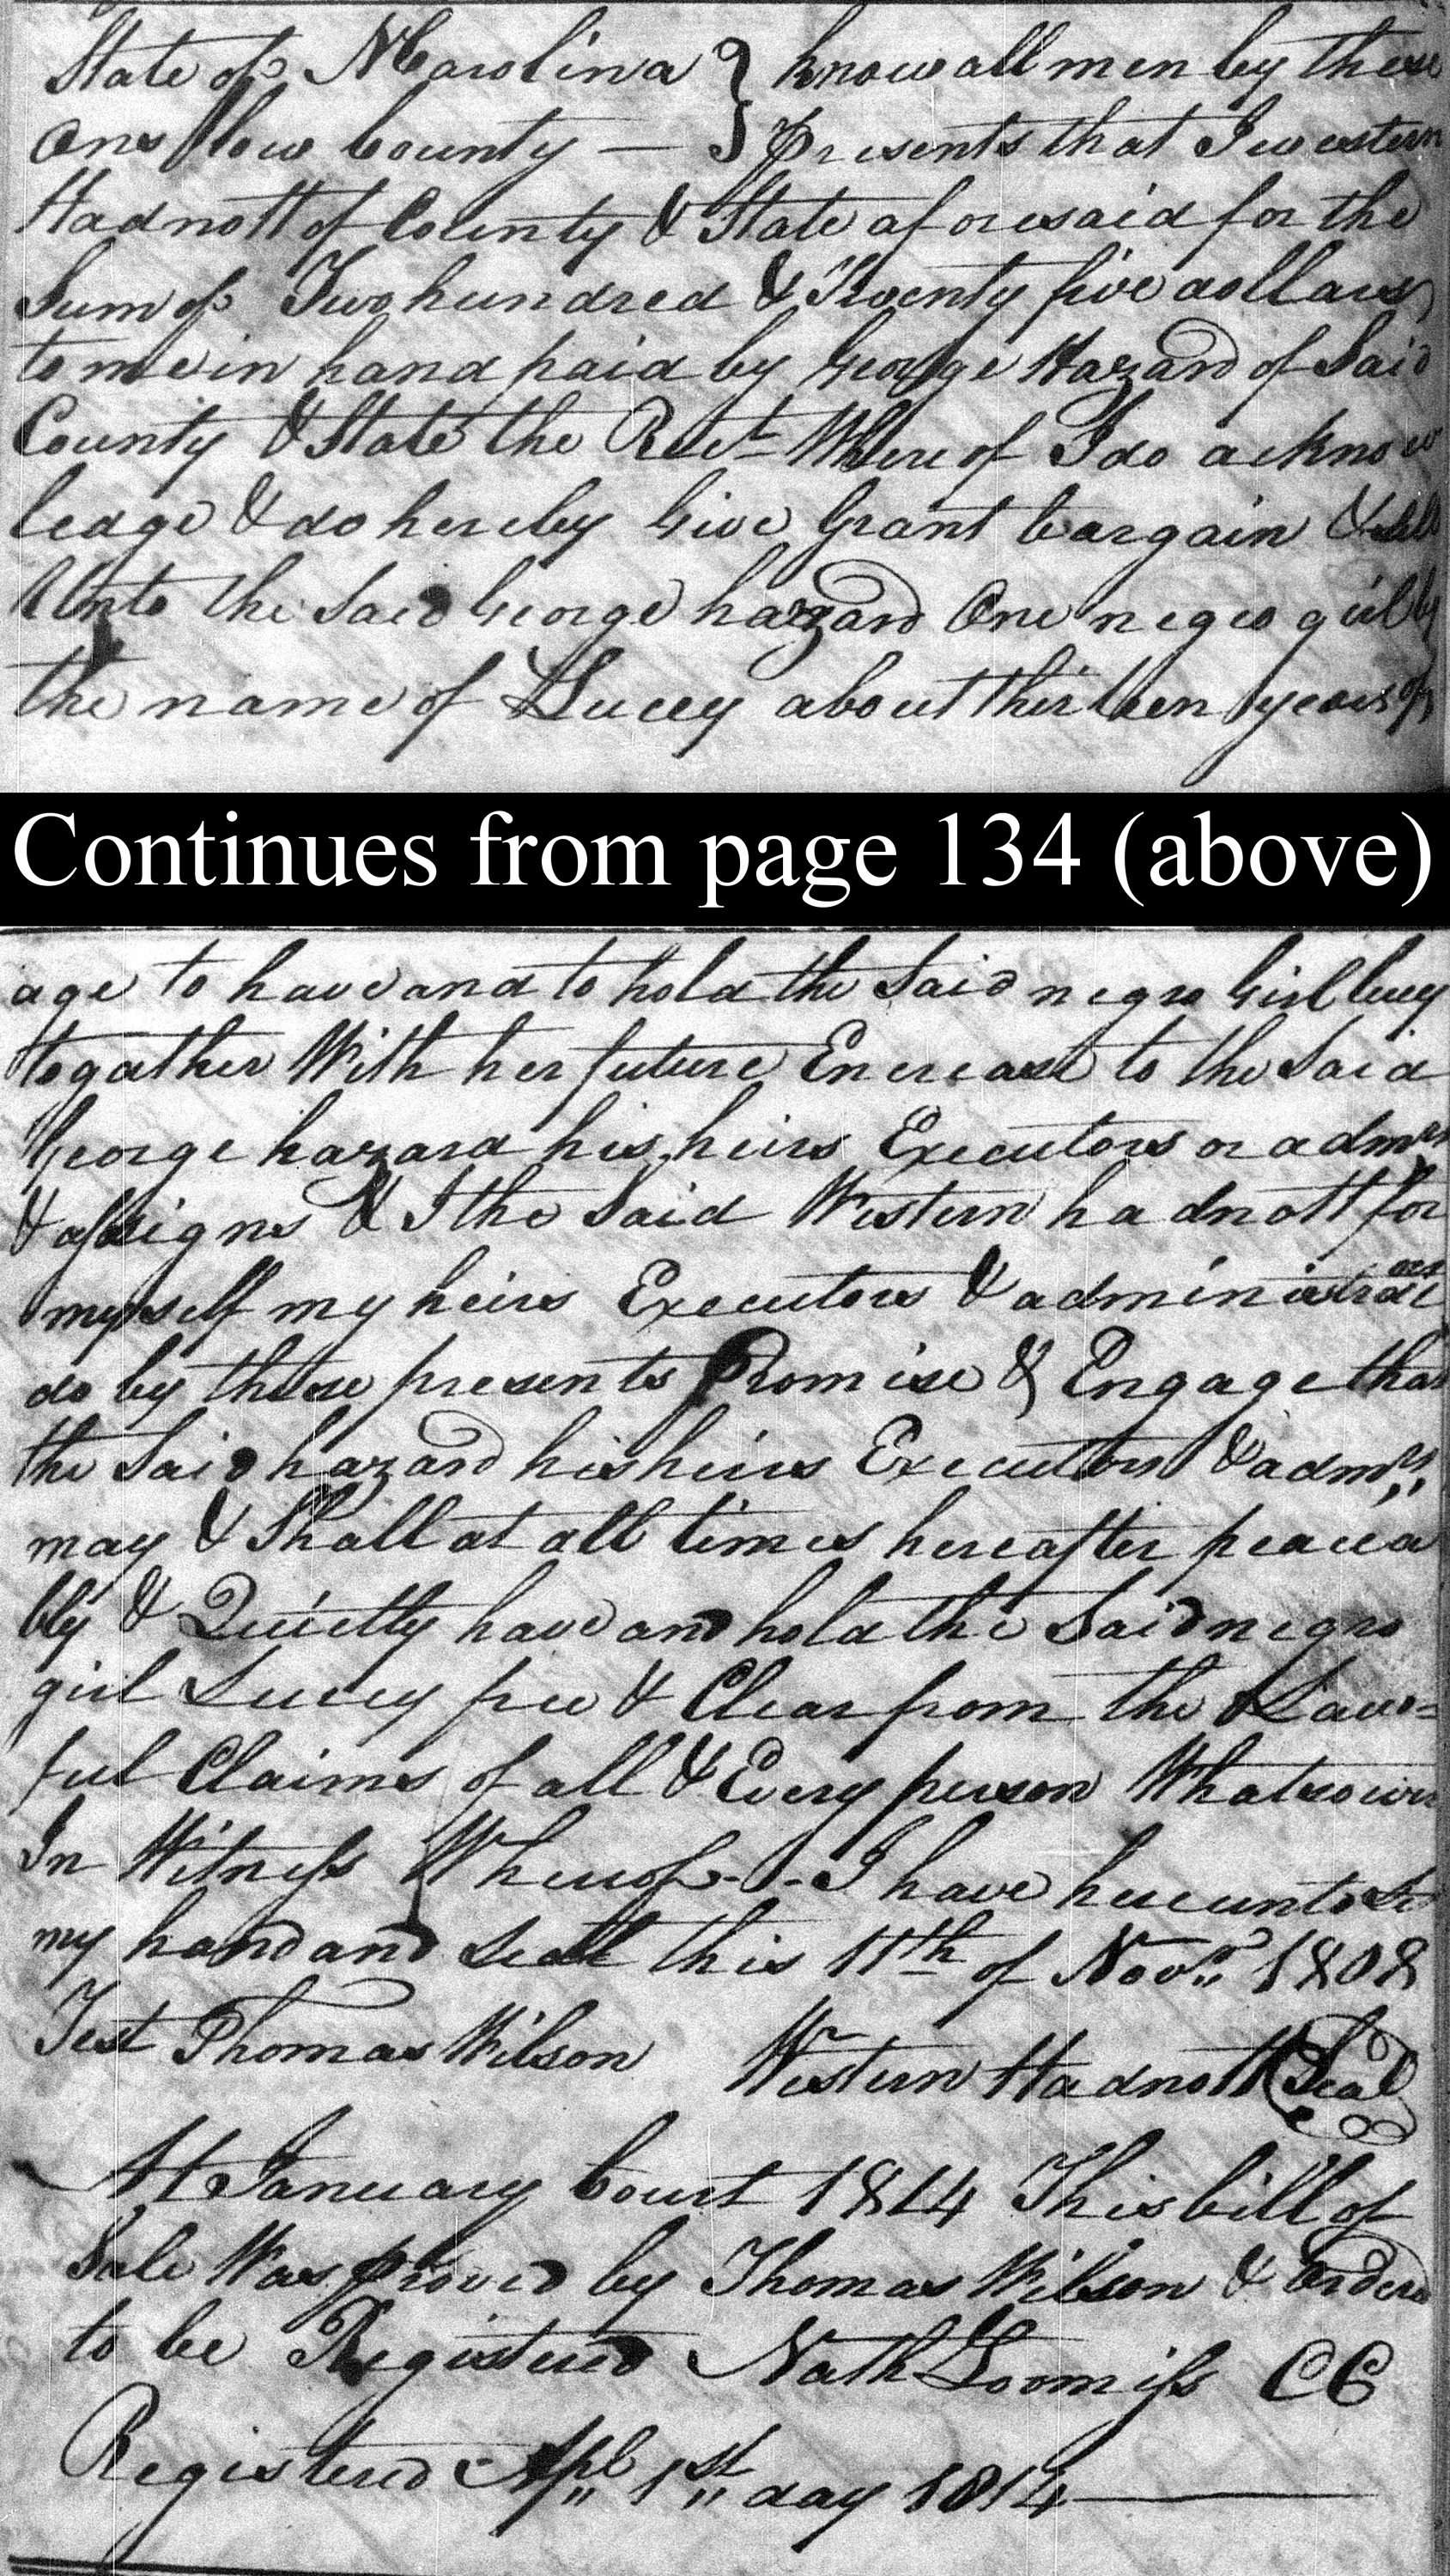 State of N Carolina } know all men by these
Onslow County — } Presents that I western
Hadnott of County & State aforesaid for the
Sum of Two hundred & Twenty five dollars
to me in hand paid by George Hazard of Said
County & State the Rect Where of I do acknow
ledge & do hereby Give Grant bargain & sell
Unto the Said George hazard One negro girl by
the name of Lucey about thirteen years of
Continues from page 134 (above)
age to have and to hold the Said negro Girl lucy
togather With her future Encrease to the Said
George hazard his heirs Executors or admrs
& assigns & I the Said Western hadnott for
myself my heirs Executors & administrators
do by these presents Promise & Engage that
the Said hazard his heirs Executors & admrs
may & Shall at all times hereafter peacea
bly & Quietly have and hold the Said negro
girl Lucey free & Clear from the Law=
ful Claims of all & Every person Whatsoever
In Witness Whereof - - - I have hereunto Set
my hand and Seal this 11th of Novr 1808
Test Thomas Wilson Western Hadnott Seal
At January Court 1814 This bill of
Sale Was proved by Thomas Wilson & Ordered
to be Registered Nath Loomiss CC
Registered Apl 1st day 1814